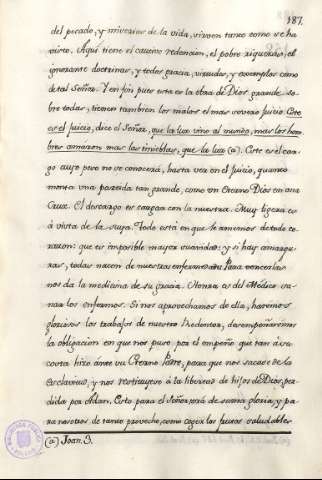 187.
del pecado, y miserias de la vida, vivoen tanto como se ha
visto. Aquí tiene el cautivo redencion, el pobre riquezas, el
ignorante doctrinas, y todos gracia, virtudes, y exemplos como
de tal Señor. Y en fin pues esta es la obra de Dios grande so-
bre todas, tienen tambien los malos el mas severo juicio. Este
es el juicio, dice el Señor, que la luz vino al mundo, mas los hom-
bres amaron mas las tinieblas, que la luz (a). Este es el car-
go cuyo peso no se conocerá, hasta ver en el juicio, quanto
monta una partida tan grande, como un Eterno Dios en una
Cruz. El descargo es cargar con la nuestra. Muy ligera es
á vista de la suya. Todo está en que le amemos de todo co-
razon: que es imposible mayor suavidad: y si hay amargu-
ras, todas nacen de nuestras enfermedades. Para vencerlas
nos da la medicina de su gracia. Honra es del Médico sa-
nar los enfermos. Si nos aprovechamos de ella, haremos
gloriosos los trabajos de nuestro Redentor, desempeñaremos
la obligacion en que nos puso por el empeño que tan á su
costa hizo ánte su Eterno Padre, para que nos sacase de la
esclavitud, y nos restituyese á la libertad de hijos de Dios, per-
dida por Adan. Esto para el Señor será de suma gloria, y pa-
ra nosotros de tanto provecho, como coger los frutos saludables
(a) Joan. 3.